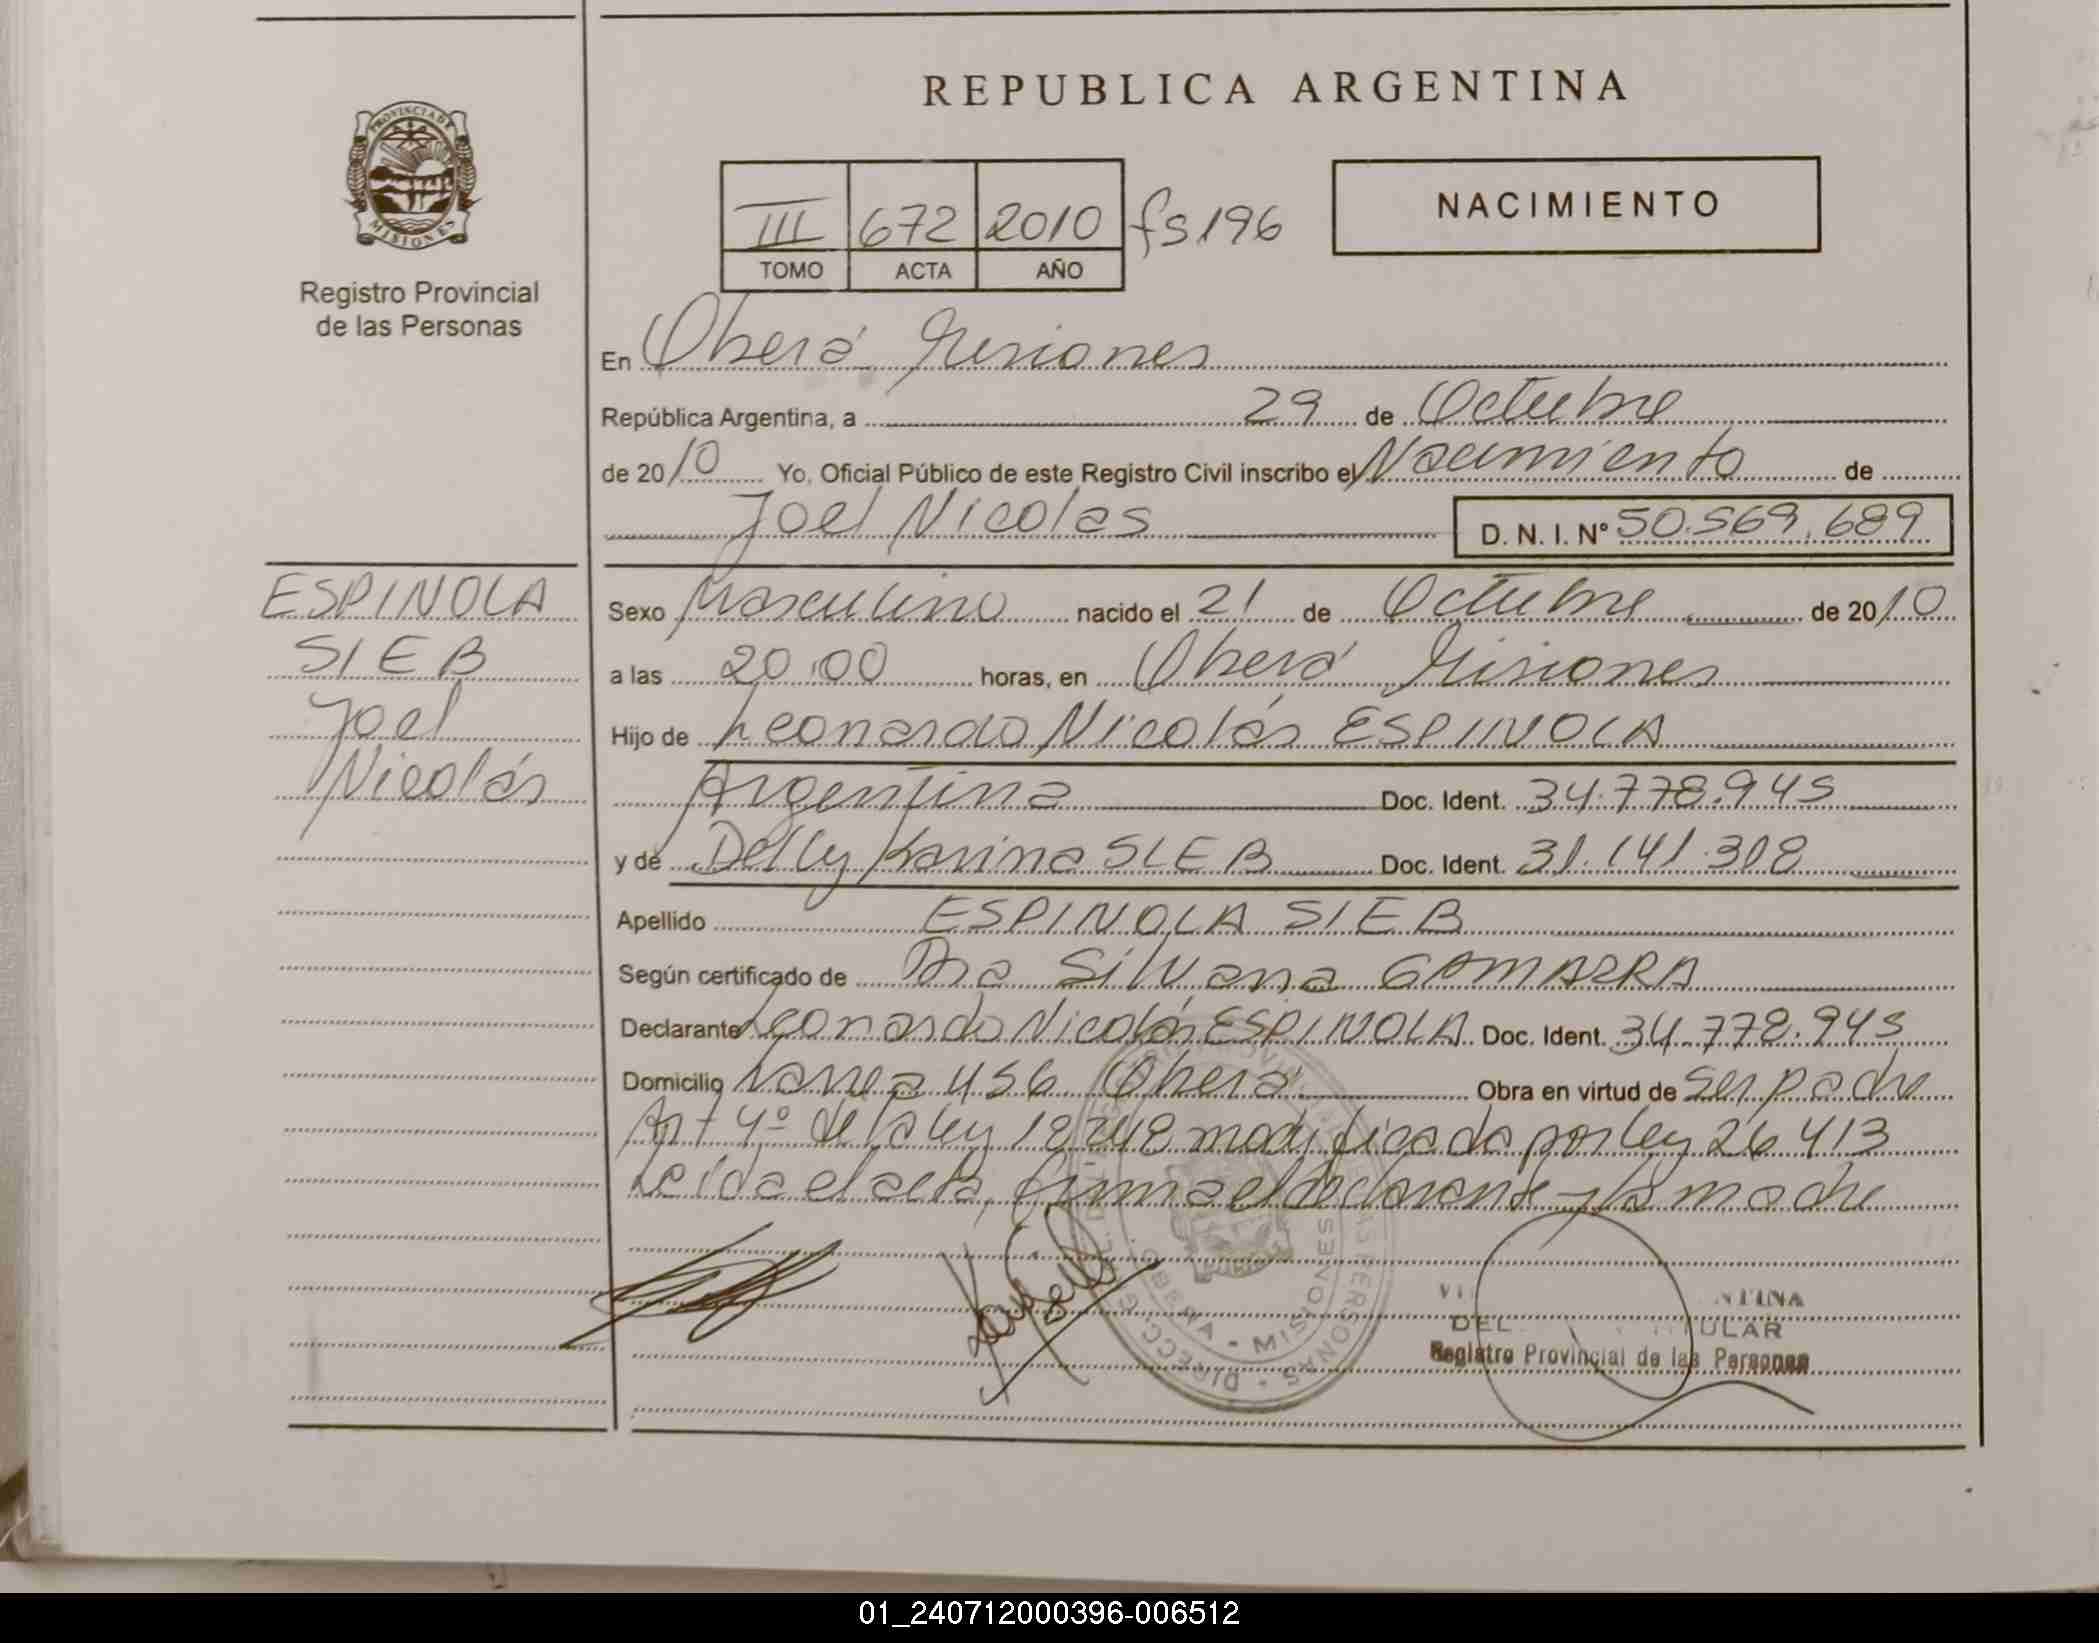 REPUBLICA ARGENTINA
PROVINCIA DE
MISIONES
Registro Provincial
de las Personas
III 672 2010 fs 196
TOMO ACTA AÑO
NACIMIENTO
En Oberá Misiones
República Argentina, a 29 de Octubre
de 2010 Yo, Oficial Público de este Registro Civil inscribo el Nacimiento de
Joel Nicolas D. N. I. Nº 50.569.689
ESPINOLA
SIEB
Joel
Nicolás
Sexo Masculino nacido el 21 de Octubre de 2010
a las 20:00 horas, en Oberá Misiones
Hijo de Leonardo Nicolás ESPINOLA
Argentina Doc. Ident. 34.778.945
y de Delly Karina SIEB Doc. Ident. 31.141.318
Apellido ESPINOLA SIEB
Según certificado de Dra Silvana GAMARRA
Declarante Leonardo Nicolás ESPINOLA Doc. Ident. 34.778.945
Domicilio 456 Oberá Obra en virtud de ser padre
Art 4º de la ley 18248 modificada por ley 26413
Leida el acta, firma el declarante y la madre
OBERA - MISIONES
DEL ULAR
Registro Provincial de las Personas
01_240712000396-006512